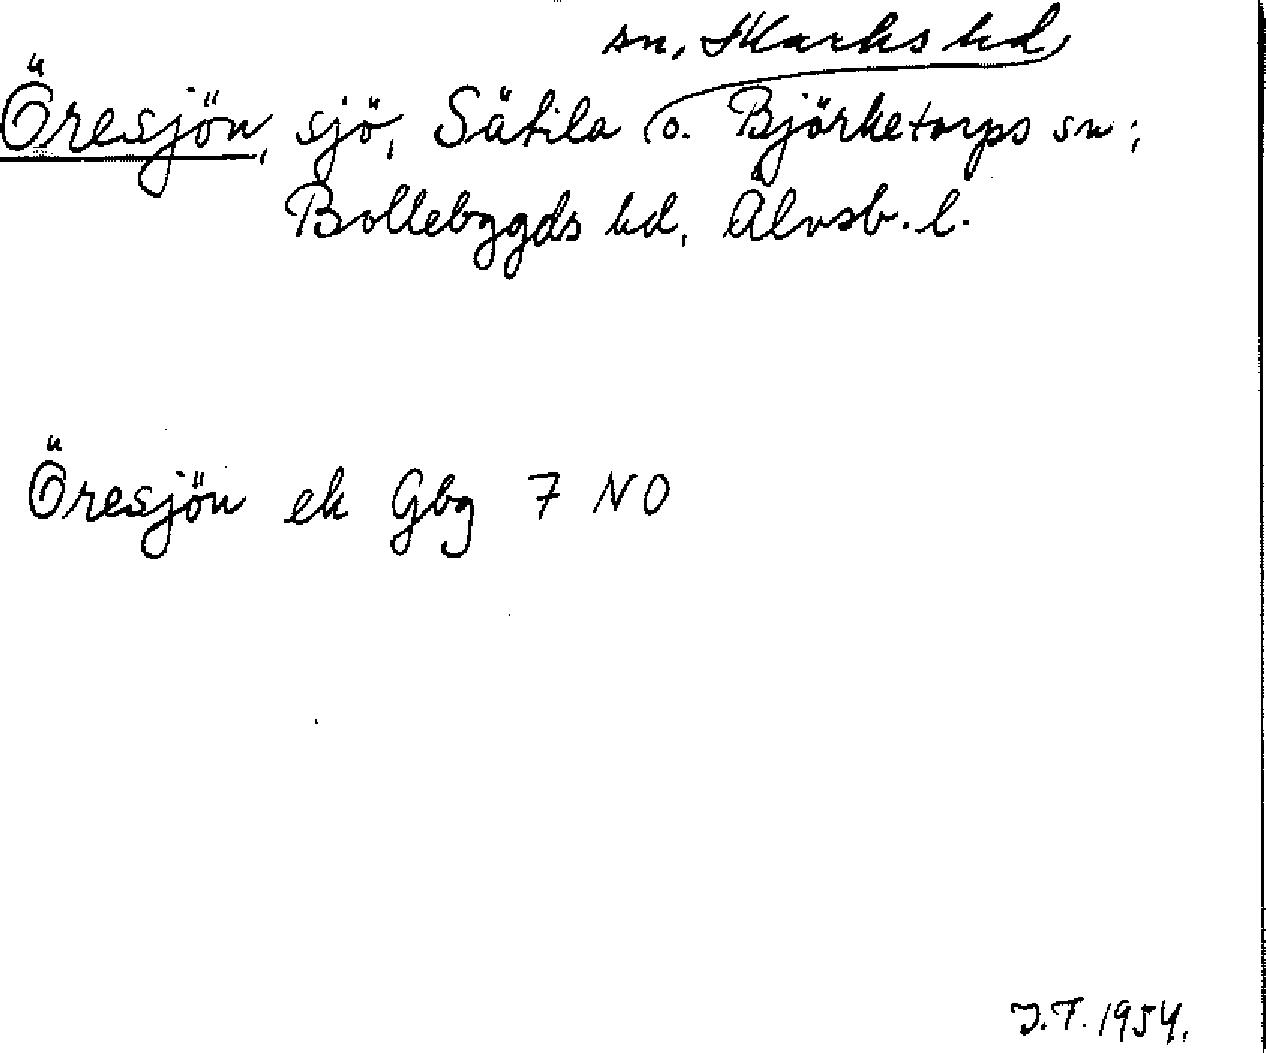 sn, Marks hd
Öresjön, sjö, Sätila o. Björketorps sn;
Bollebygds hd, Älvsb. l.
Öresjön ek Gbg 7 NO
J.T. 1954.